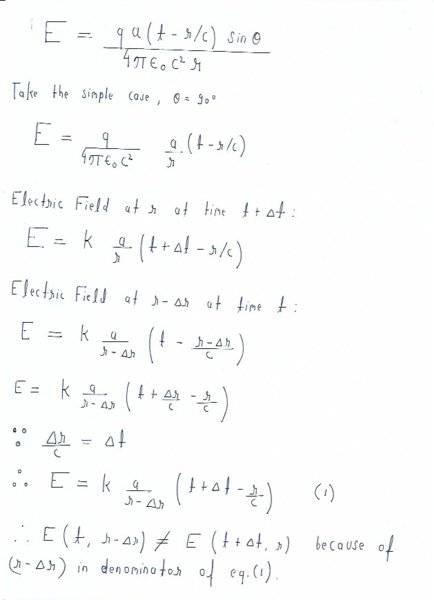 E = q a(t - r/c) sin θ / 4πε₀c²r
Take the simple case, θ = 90°
E = q/4πε₀c² a/r (t - r/c)
Electric Field at r at time t + Δt :
E = k a/r (t + Δt - r/c)
Electric Field at r - Δr at time t :
E = k a/r-Δr (t - r-Δr/c)
E = k a/r-Δr (t + Δr/c - r/c)
∵ Δr/c = Δt
∴ E = k a/r-Δr (t + Δt - r/c) (1)
∴ E(t, r-Δr) ≠ E(t+Δt, r) because of
(r-Δr) in denominator of eq.(1).